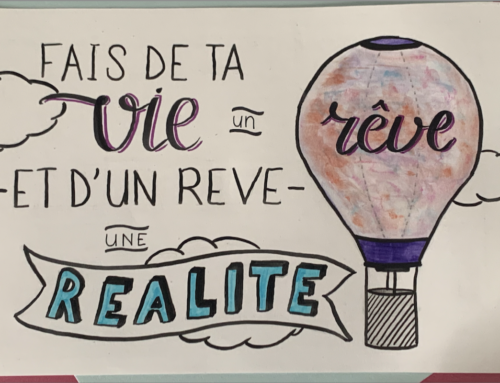 FAIS DE TA
vie un rêve
-ET D'UN REVE-
UNE
REALITE